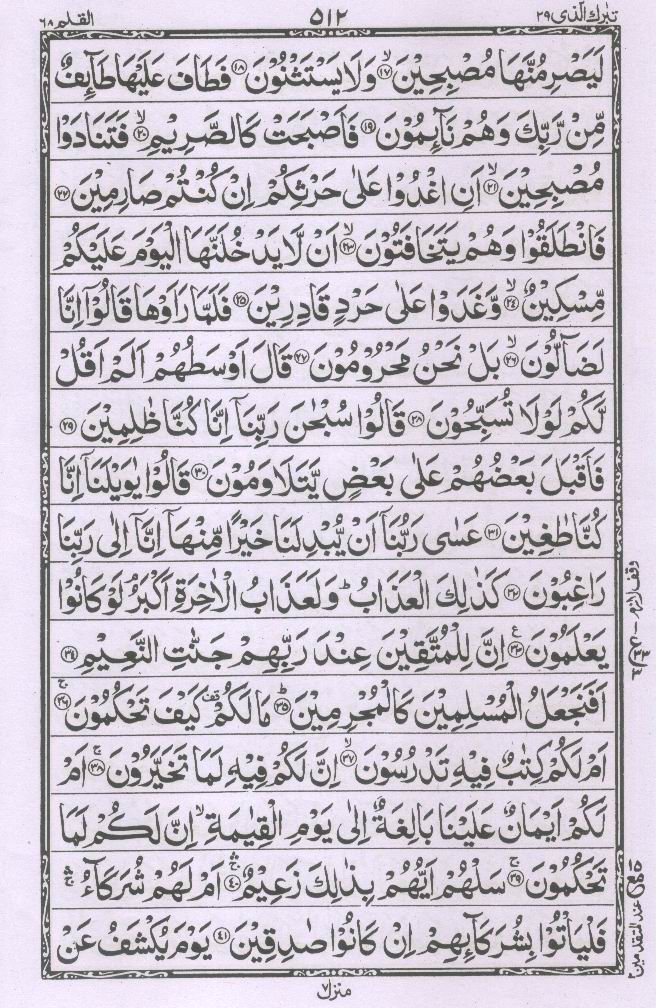 تبٰرك الّذى ٢٩ ٥١٢ القلم ٦٨
لَيَصْرِمُنَّهَا مُصْبِحِيْنَ ۙ﴿۱۷﴾ وَلَا يَسْتَثْنُوْنَ ﴿۱۸﴾ فَطَافَ عَلَيْهَا طَآئِفٌ
مِّنْ رَّبِّكَ وَهُمْ نَآئِمُوْنَ ﴿۱۹﴾ فَاَصْبَحَتْ كَالصَّرِيْمِ ۙ﴿۲۰﴾ فَتَنَادَوْا
مُصْبِحِيْنَ ۙ﴿۲۱﴾ اَنِ اغْدُوْا عَلٰى حَرْثِكُمْ اِنْ كُنْتُمْ صَارِمِيْنَ ﴿۲۲﴾
فَانْطَلَقُوْا وَهُمْ يَتَخَافَتُوْنَ ۙ﴿۲۳﴾ اَنْ لَّا يَدْخُلَنَّهَا الْيَوْمَ عَلَيْكُمْ
مِّسْكِيْنٌ ۙ﴿۲۴﴾ وَّغَدَوْا عَلٰى حَرْدٍ قَادِرِيْنَ ﴿۲۵﴾ فَلَمَّا رَاَوْهَا قَالُوْٓا اِنَّا
لَضَآلُّوْنَ ۙ﴿۲۶﴾ بَلْ نَحْنُ مَحْرُوْمُوْنَ ﴿۲۷﴾ قَالَ اَوْسَطُهُمْ اَلَمْ اَقُلْ
لَّكُمْ لَوْلَا تُسَبِّحُوْنَ ﴿۲۸﴾ قَالُوْا سُبْحٰنَ رَبِّنَآ اِنَّا كُنَّا ظٰلِمِيْنَ ﴿۲۹﴾
فَاَقْبَلَ بَعْضُهُمْ عَلٰى بَعْضٍ يَّتَلَاوَمُوْنَ ﴿۳۰﴾ قَالُوْا يٰوَيْلَنَآ اِنَّا
كُنَّا طٰغِيْنَ ﴿۳۱﴾ عَسٰى رَبُّنَآ اَنْ يُّبْدِلَنَا خَيْرًا مِّنْهَآ اِنَّآ اِلٰى رَبِّنَا
رَاغِبُوْنَ ﴿۳۲﴾ كَذٰلِكَ الْعَذَابُ ؕ وَلَعَذَابُ الْاٰخِرَةِ اَكْبَرُ ۘ لَوْ كَانُوْا
يَعْلَمُوْنَ ﴿۳۳﴾ اِنَّ لِلْمُتَّقِيْنَ عِنْدَ رَبِّهِمْ جَنّٰتِ النَّعِيْمِ ﴿۳۴﴾
اَفَنَجْعَلُ الْمُسْلِمِيْنَ كَالْمُجْرِمِيْنَ ؕ﴿۳۵﴾ مَا لَكُمْ ۥ كَيْفَ تَحْكُمُوْنَ ۚ﴿۳۶﴾
اَمْ لَكُمْ كِتٰبٌ فِيْهِ تَدْرُسُوْنَ ۙ﴿۳۷﴾ اِنَّ لَكُمْ فِيْهِ لَمَا تَخَيَّرُوْنَ ۚ﴿۳۸﴾ اَمْ
لَكُمْ اَيْمَانٌ عَلَيْنَا بَالِغَةٌ اِلٰى يَوْمِ الْقِيٰمَةِ ۙ اِنَّ لَكُمْ لَمَا
تَحْكُمُوْنَ ۚ﴿۳۹﴾ سَلْهُمْ اَيُّهُمْ بِذٰلِكَ زَعِيْمٌ ۛۚ﴿۴۰﴾ اَمْ لَهُمْ شُرَكَآءُ ۛۚ
فَلْيَاْتُوْا بِشُرَكَآئِهِمْ اِنْ كَانُوْا صٰدِقِيْنَ ﴿۴۱﴾ يَوْمَ يُكْشَفُ عَنْ
وقف لازم
عند المتقدمين
منزل ٧